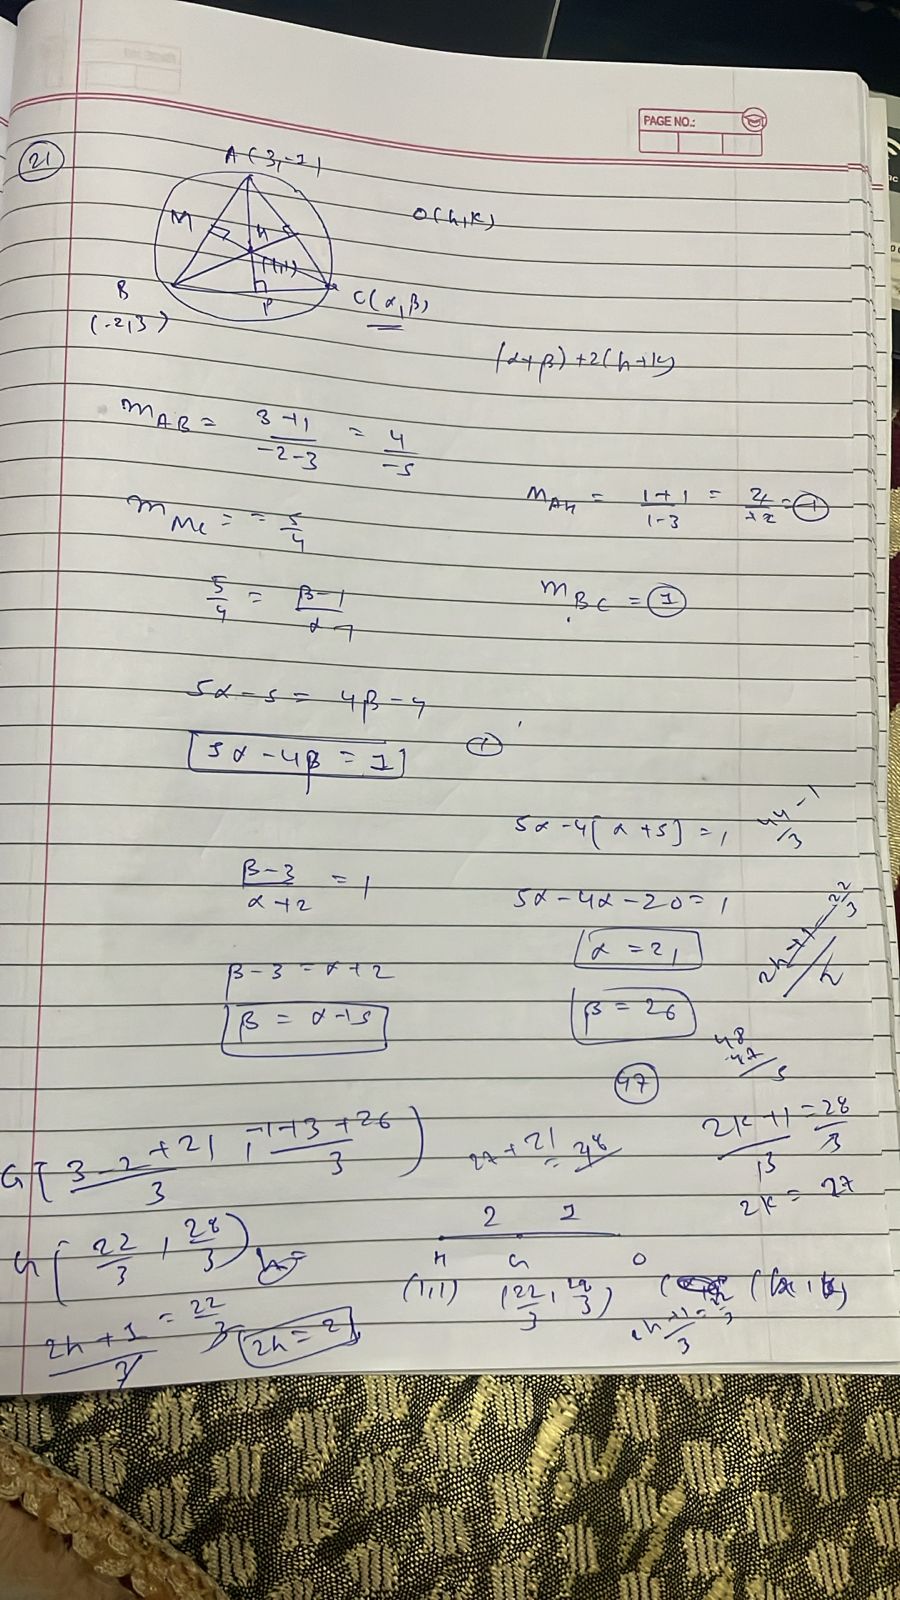 PAGE NO.:
21
A(3,-1)
O(h,k)
M
H
(1,1)
B
(-2,3)
P
C(α,β)
(α+β)+2(h+k)
m_AB = 3+1/-2-3 = 4/-5
m_MC = = 5/4
m_AH = 1+1/1-3 = 2/-2 = -1
5/4 = β-1/α-1
m_BC = 1
5α-5 = 4β-4
5α-4β = 1
5α-4[α+5] = 1
44/3 - 1
β-3/α+2 = 1
5α-4α-20 = 1
2h+1 = 22/3
α = 21
β-3 = α+2
β = α+5
β = 26
47
48
47
G[3-2+21/3, -1+3+26/3]
27+21 = 48
2k+1/3 = 28/3
2k = 27
G[22/3, 28/3]
h=
2 1
H G O
(1,1) (22/3, 28/3) (h, k)
2h+1/3 = 22/3
2h = 21
2h+1/3 = 22/3